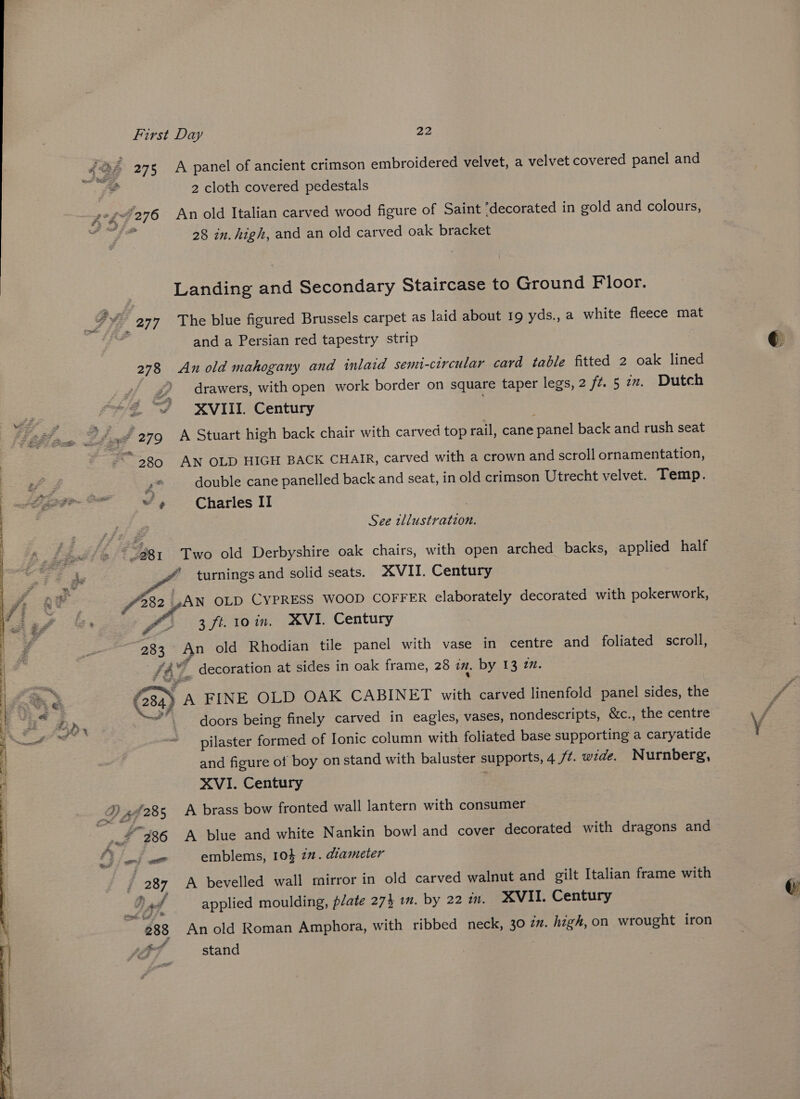 First Day 22
275 A panel of ancient crimson embroidered velvet, a velvet covered panel and
2 cloth covered pedestals
276 An old Italian carved wood figure of Saint decorated in gold and colours,
28 in. high, and an old carved oak bracket
Landing and Secondary Staircase to Ground Floor.
277 The blue figured Brussels carpet as laid about 19 yds., a white fleece mat
and a Persian red tapestry strip
278 An old mahogany and inlaid semi-circular card table fitted 2 oak lined
drawers, with open work border on square taper legs, 2 ft. 5 in. Dutch
XVIII. Century
279 A Stuart high back chair with carved top rail, cane panel back and rush seat
280 AN OLD HIGH BACK CHAIR, carved with a crown and scroll ornamentation,
double cane panelled back and seat, in old crimson Utrecht velvet. Temp.
Charles II
See illustration.
281 Two old Derbyshire oak chairs, with open arched backs, applied half
turnings and solid seats. XVII. Century
282 AN OLD CYPRESS WOOD COFFER elaborately decorated with pokerwork,
3 ft. 10 in. XVI. Century
283 An old Rhodian tile panel with vase in centre and foliated scroll,
decoration at sides in oak frame, 28 in. by 13 in.
284 A FINE OLD OAK CABINET with carved linenfold panel sides, the
doors being finely carved in eagles, vases, nondescripts, &c., the centre
pilaster formed of Ionic column with foliated base supporting a caryatide
and figure of boy on stand with baluster supports, 4 ft. wide. Nurnberg,
XVI. Century
285 A brass bow fronted wall lantern with consumer
286 A blue and white Nankin bowl and cover decorated with dragons and
emblems, 10½ in. diameter
287 A bevelled wall mirror in old carved walnut and gilt Italian frame with
applied moulding, plate 27½ in. by 22 in. XVII. Century
288 An old Roman Amphora, with ribbed neck, 30 in. high, on wrought iron
stand